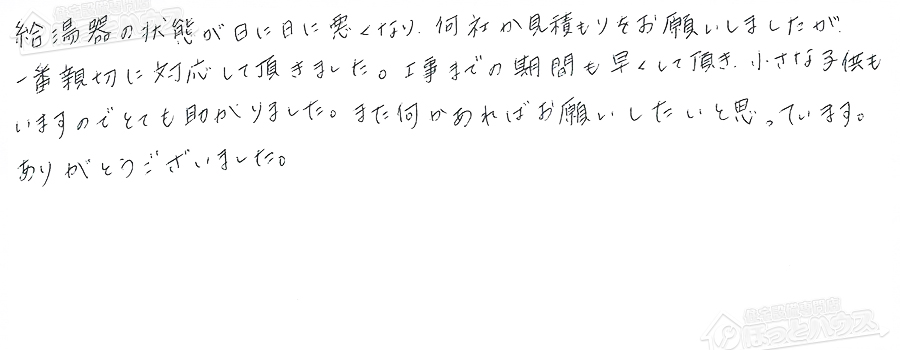 給湯器の状態が日に日に悪くなり、何社か見積もりをお願いしましたが、
一番親切に対応して頂きました。工事までの期間も早くして頂き、小さな子供も
いますのでとても助かりました。また何かあればお願いしたいと思っています。
ありがとうございました。
住宅設備専門店
ほっとハウス